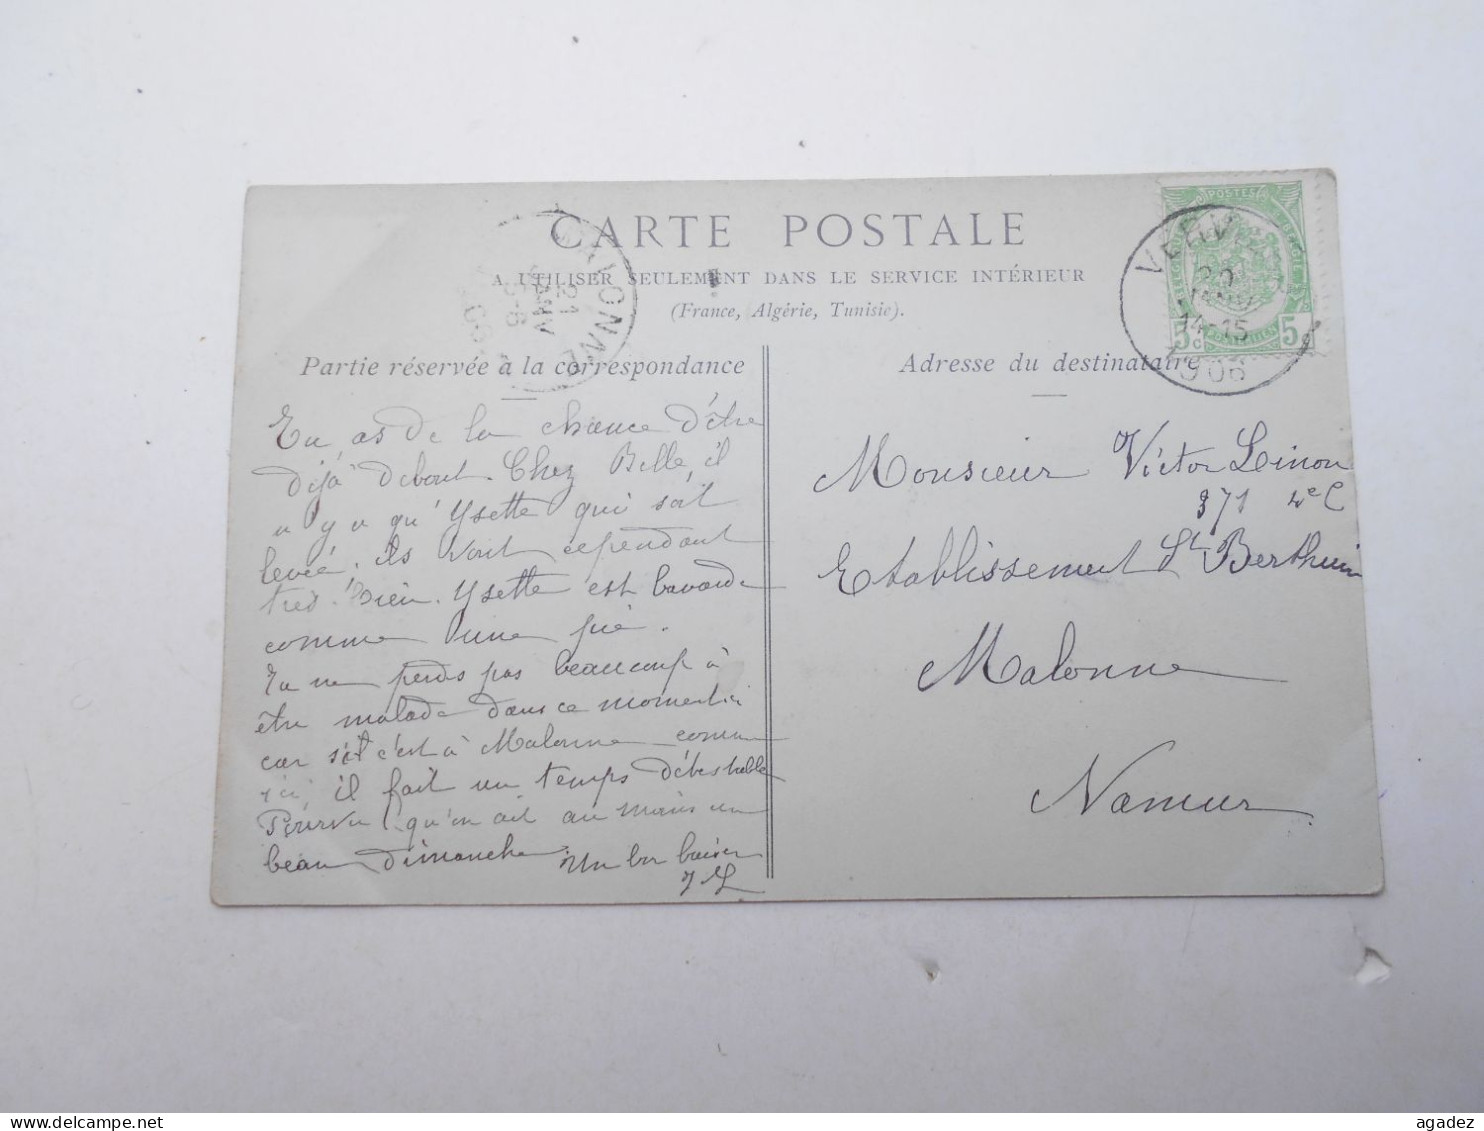 CARTE POSTALE
A UTILISER SEULEMENT DANS LE SERVICE INTÉRIEUR
(France, Algérie, Tunisie).
Partie réservée à la correspondance
Tu as de la chance d'être
déjà debout. Chez Belle, il
n'y a qu'Ysette qui soit
levée. ils vont cependant
très bien. Ysette est bavarde
comme une pie.
Tu ne perds pas beaucoup à
être malade dans ce moment ci
car si c'est à Malonne comme
ici, il fait un temps détestable
Pourvu qu'on ait au moins un
beau dimanche. Un bon baiser
Adresse du destinataire
Monsieur Victor Linon
371 4e C
Etablissement St Berthuin
Malonne
Namur
POSTES
5c
5
VERV
20
JANV
14-15
1906
MALONNE
21
JANV
5-6
agadez